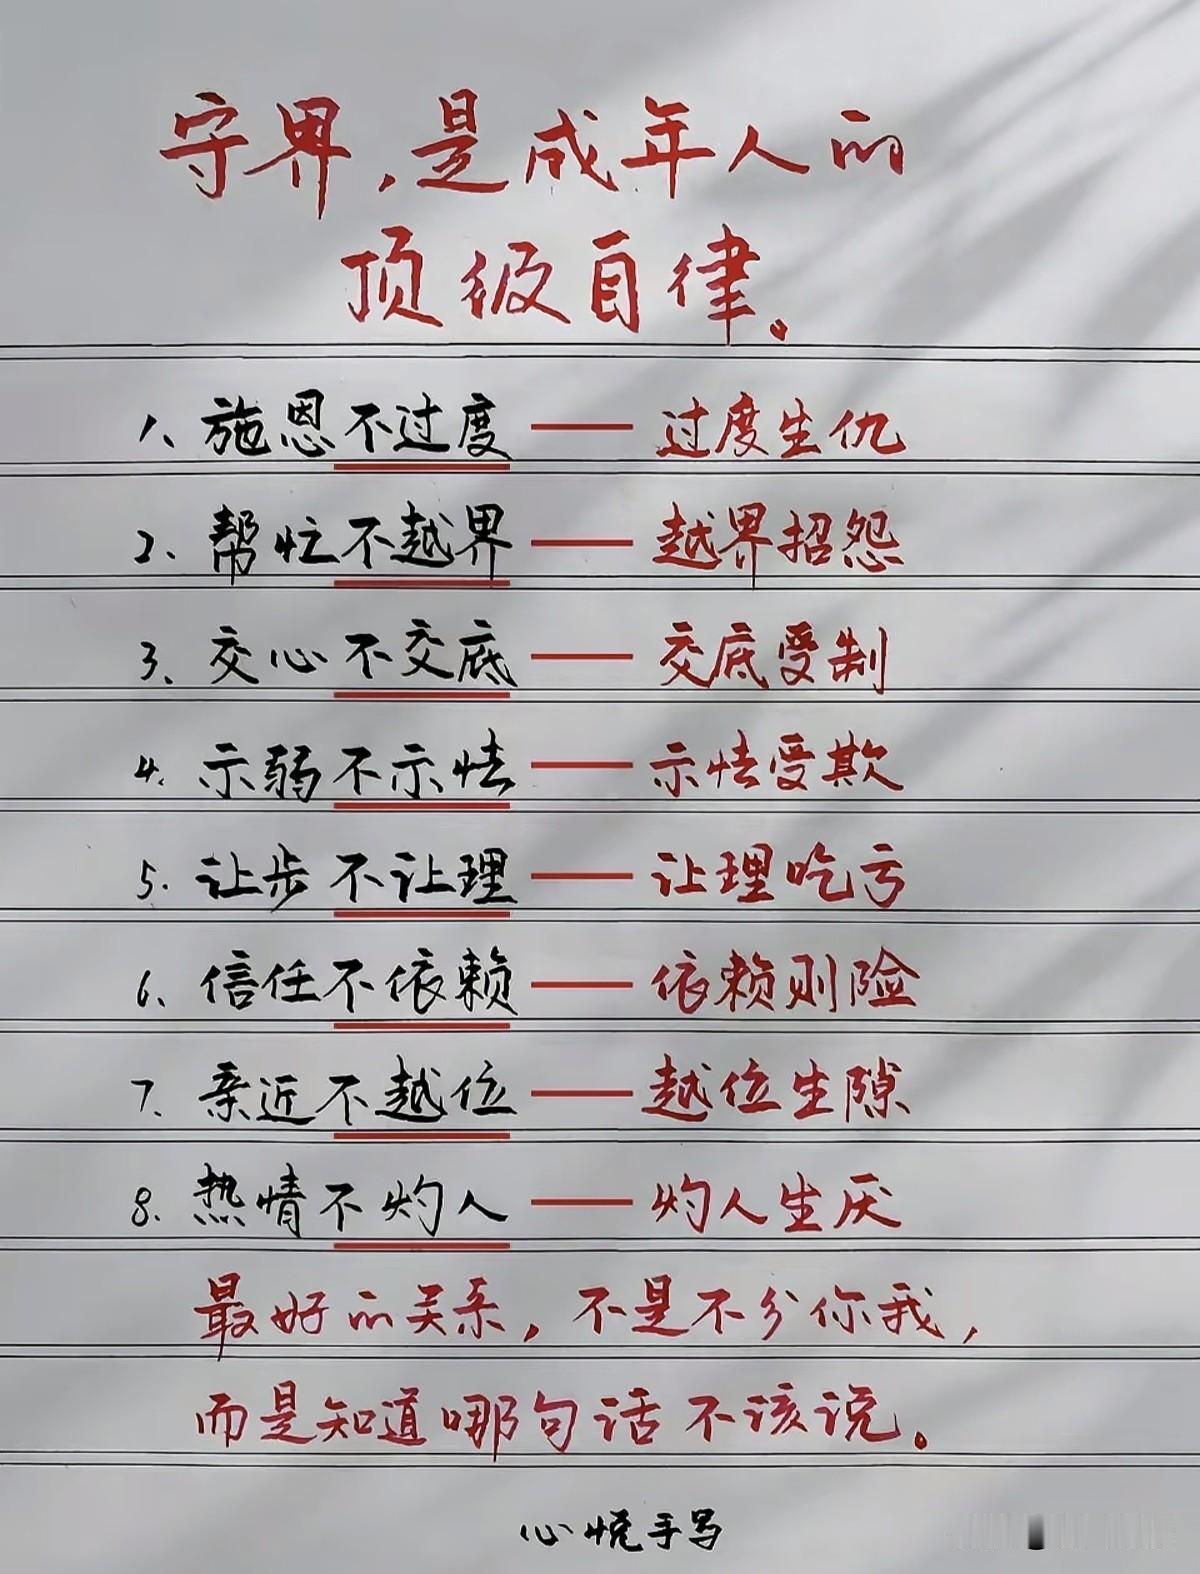 守界,是成年人的
顶级自律。
1、施恩不过度——过度生仇
2、帮忙不越界——越界招怨
3、交心不交底——交底受制
4、示弱不示怯——示怯受欺
5.让步不让理——让理吃亏
6、信任不依赖——依赖则险
7、亲近不越位——越位生隙
8.热情不灼人——灼人生厌
最好的关系,不是不分你我,
而是知道哪句话不该说。
心悦手写